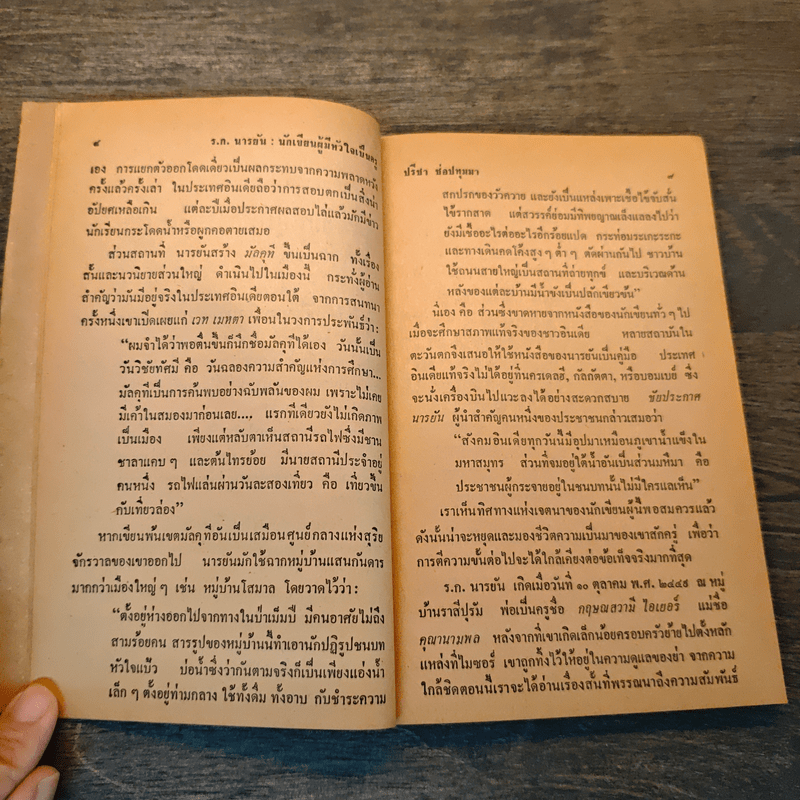 ๘ ร.ก. นารยัน : นักเขียนผู้มีหัวใจเป็นครู
เอง การแยกตัวออกโดดเดี่ยวเป็นผลกระทบจากความพลาดหวัง
ครั้งแล้วครั้งเล่า ในประเทศอินเดียถือว่าการสอบตกเป็นสิ่งน่า
อัปยศเหลือเกิน แต่ละปีเมื่อประกาศผลสอบไล่แล้วมักมีข่าว
นักเรียนกระโดดน้ำหรือผูกคอตายเสมอ
ส่วนสถานที่ นารยันสร้าง มัลคุที ขึ้นเป็นฉาก ทั้งเรื่อง
สั้นและนวนิยายส่วนใหญ่ ดำเนินไปในเมืองนี้ กระทั่งผู้อ่าน
สำคัญว่ามันมีอยู่จริงในประเทศอินเดียตอนใต้ จากการสนทนา
ครั้งหนึ่งเขาเปิดเผยแก่ เวท เมหตา เพื่อนในวงการประพันธ์ว่า:
“ผมจำได้ว่าพอตื่นขึ้นก็นึกชื่อมัลคุทีได้เอง วันนั้นเป็น
วันวิชัยทัศมี คือ วันฉลองความสำคัญแห่งการศึกษา...
มัลคุทีเป็นการค้นพบอย่างฉับพลันของผม เพราะไม่เคย
มีเค้าในสมองมาก่อนเลย.... แรกทีเดียวยังไม่เกิดภาพ
เป็นเมือง เพียงแต่หลับตาเห็นสถานีรถไฟซึ่งมีชาน
ชาลาแคบ ๆ และต้นไทรย้อย มีนายสถานีประจำอยู่
คนหนึ่ง รถไฟแล่นผ่านวันละสองเที่ยว คือ เที่ยวขึ้น
กับเที่ยวล่อง”
หากเขียนพ้นเขตมัลคุทีอันเป็นเสมือนศูนย์กลางแห่งสุริย
จักรวาลของเขาออกไป นารยันมักใช้ฉากหมู่บ้านแสนกันดาร
มากกว่าเมืองใหญ่ ๆ เช่น หมู่บ้านโสมาล โดยวาดไว้ว่า:
“ตั้งอยู่ห่างออกไปจากทางในป่าเม็มปี มีคนอาศัยไม่ถึง
สามร้อยคน สารรูปของหมู่บ้านนี้ทำเอานักปฏิรูปชนบท
หัวใจแป้ว บ่อน้ำซึ่งว่ากันตามจริงก็เป็นเพียงแอ่งน้ำ
เล็ก ๆ ตั้งอยู่ท่ามกลาง ใช้ทั้งดื่ม ทั้งอาบ กับชำระความ
ปรีชา ช่อปทุมมา ๙
สกปรกของวัวควาย และยังเป็นแหล่งเพาะเชื้อไข้จับสั่น
ไข้รากสาด แต่สวรรค์ย่อมมีทิพยญาณเล็งแลลงไปว่า
ยังมีเชื้ออะไรต่ออะไรอีกร้อยแปด กระท่อมระเกะระกะ
และทางเดินคดโค้งสูง ๆ ต่ำ ๆ ตัดผ่านกันไป ชาวบ้าน
ใช้ถนนสายใหญ่เป็นสถานที่ถ่ายทุกข์ และบริเวณด้าน
หลังของแต่ละบ้านมีน้ำขังเป็นปลักเขียวข้น”
นี่เอง คือ ส่วนซึ่งขาดหายจากหนังสือของนักเขียนทั่ว ๆ ไป
เมื่อจะศึกษาสภาพแท้จริงของชาวอินเดีย หลายสถาบันใน
ตะวันตกจึงเสนอให้ใช้หนังสือของนารยันเป็นคู่มือ ประเทศ
อินเดียแท้จริงไม่ได้อยู่ที่นครเดลฮี, กัลกัตตา, หรือบอมเบย์ ซึ่ง
จะนั่งเครื่องบินไปแวะลงได้อย่างสะดวกสบาย ชัยประกาศ
นารยัน ผู้นำสำคัญคนหนึ่งของประชาชนกล่าวเสมอว่า
“สังคมอินเดียทุกวันนี้มีอุปมาเหมือนภูเขาน้ำแข็งใน
มหาสมุทร ส่วนที่จมอยู่ใต้น้ำอันเป็นส่วนมหึมา คือ
ประชาชนผู้กระจายอยู่ในชนบทนั้นไม่มีใครแลเห็น”
เราเห็นทิศทางแห่งเจตนาของนักเขียนผู้นี้พอสมควรแล้ว
ดังนั้นน่าจะหยุดและมองชีวิตความเป็นมาของเขาสักครู่ เพื่อว่า
การตีความขั้นต่อไปจะได้ใกล้เคียงต่อข้อเท็จจริงมากที่สุด
ร.ก. นารยัน เกิดเมื่อวันที่ ๑๐ ตุลาคม พ.ศ. ๒๔๔๙ ณ หมู่
บ้านราสีปุรัม พ่อเป็นครูชื่อ กฤษณสวามี ไอเยอร์ แม่ชื่อ
คุณานามพล หลังจากที่เขาเกิดเล็กน้อยครอบครัวย้ายไปตั้งหลัก
แหล่งที่ไมซอร์ เขาถูกทิ้งไว้ให้อยู่ในความดูแลของย่า จากความ
ใกล้ชิดตอนนี้เราจะได้อ่านเรื่องสั้นที่พรรณนาถึงความสัมพันธ์